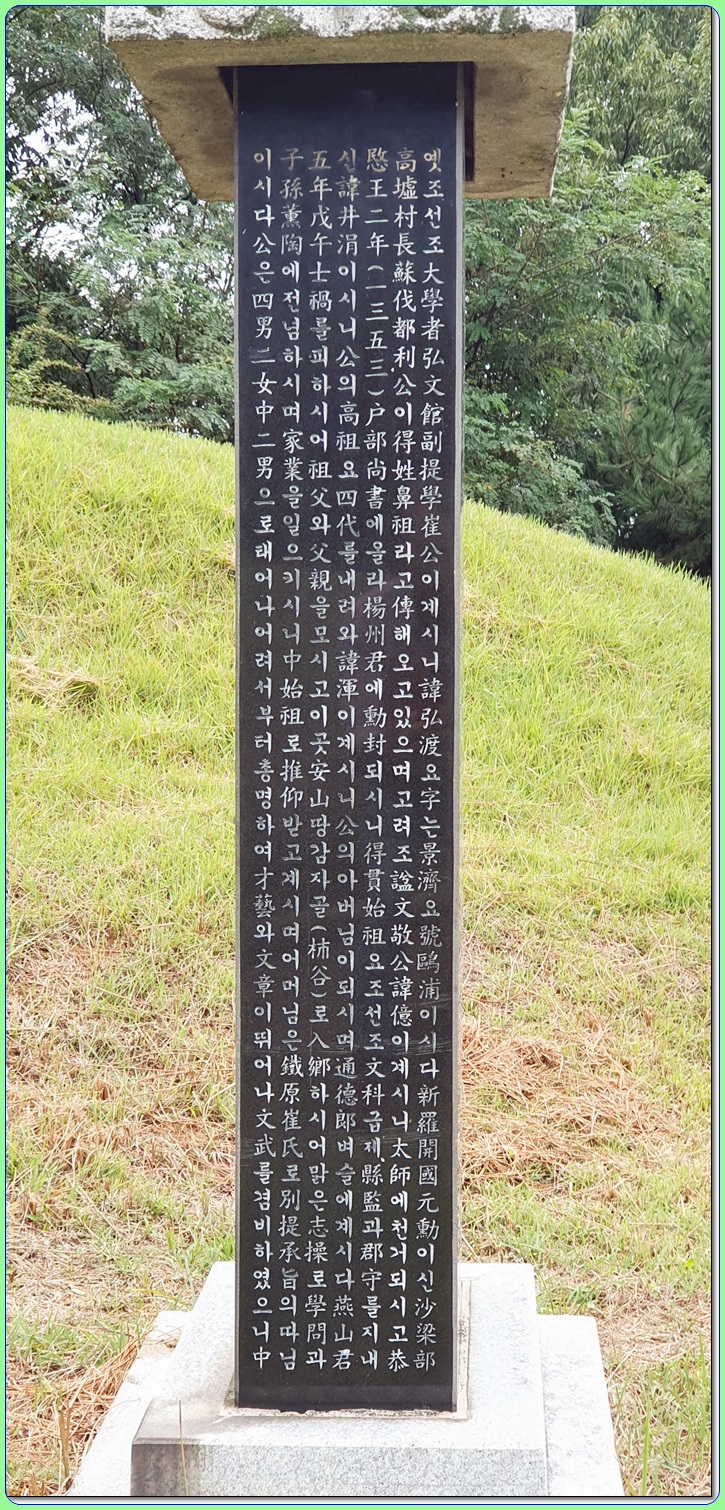 옛조선조大學者弘文館副提學崔公이계시니諱弘渡요字는景濟요號鷗浦이시다新羅開國元勳이신沙梁部
高墟村長蘇伐都利公이得姓鼻祖라고傳해오고있으며고려조諡文敬公諱億이계시니太師에천거되시고恭
愍王二年(一三五三)户部尙書에올라楊州君에勳封되시니得貫始祖요조선조文科급제縣監과郡守를지내
신諱井涓이시니公의高祖요四代를내려와諱渾이계시니公의아버님이되시며通德郞벼슬에계시다燕山君
五年戊午士禍를피하시어祖父와父親을모시고이곳安山땅감자골(枾谷)로入鄕하시어맑은志操로學問과
子孫薰陶에전념하시며家業을일으키시니中始祖로推仰받고계시며어머님은鐵原崔氏로別提承旨의따님
이시다公은四男二女中二男으로태어나어려서부터총명하여才藝와文章이뛰어나文武를겸비하였으니中